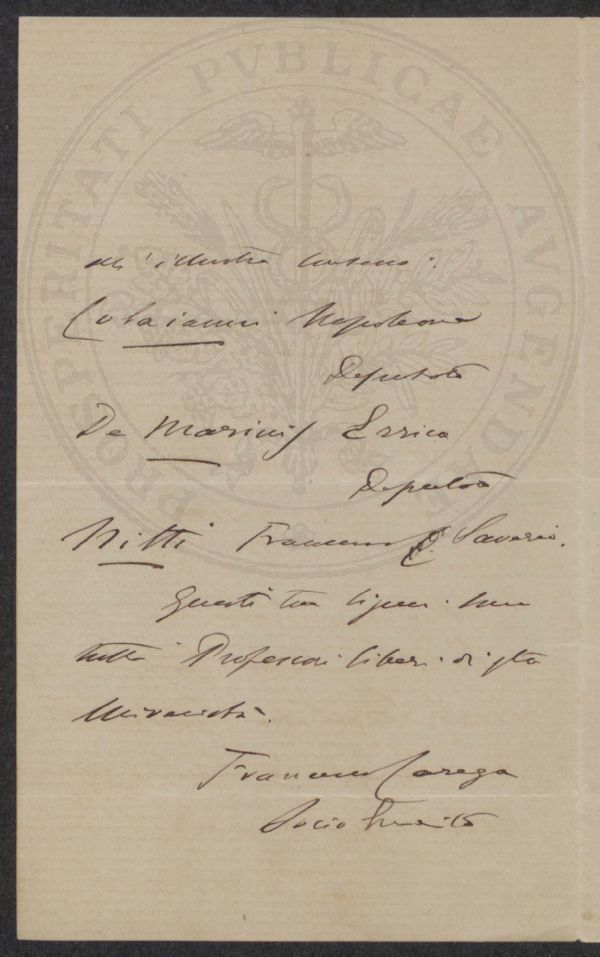 PROSPERITATI PVBLICAE AVGENDAE
all'illustre
Colaianni Napoleone
Deputato
De Marinis Errico
Deputato
Nitti Francesco Saverio.
Questi tre signori sono
tutti Professori liberi di qta
Università.
Francesco Carega
Socio